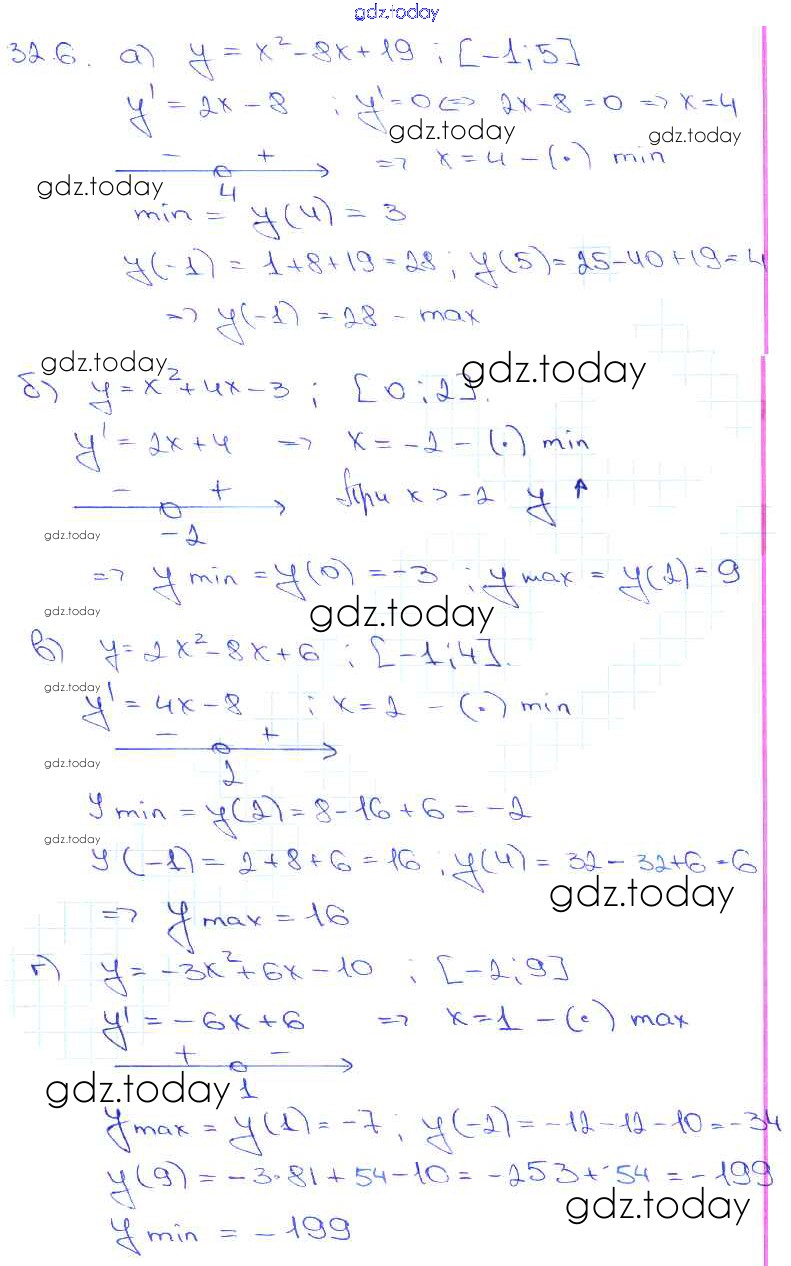 gdz.today
32.6. а) y = x² - 8x + 19 ; [-1; 5]
y' = 2x - 8 ; y' = 0 <=> 2x - 8 = 0 => x = 4
gdz.today gdz.today
- + => x = 4 - (·) min
gdz.today 4
min = y(4) = 3
y(-1) = 1+8+19 = 28 ; y(5) = 25-40+19 = 4
=> y(-1) = 28 - max
gdz.today gdz.today
б) y = x² + 4x - 3 ; [0; 2].
y' = 2x + 4 => x = -2 - (·) min
- + При x > -2 y ↑
gdz.today -2
=> y min = y(0) = -3 ; y max = y(2) = 9
gdz.today gdz.today
в) y = 2x² - 8x + 6 ; [-1; 4].
gdz.today
y' = 4x - 8 ; x = 2 - (·) min
- +
gdz.today 2
y min = y(2) = 8-16+6 = -2
gdz.today
y(-1) = 2+8+6 = 16 ; y(4) = 32-32+6 = 6
gdz.today
=> y max = 16
г) y = -3x² + 6x - 10 ; [-2; 9]
y' = -6x + 6 => x = 1 - (·) max
+ -
gdz.today 1
y max = y(1) = -7 ; y(-2) = -12-12-10 = -34
y(9) = -3·81+54-10 = -253+54 = -199
gdz.today
y min = -199